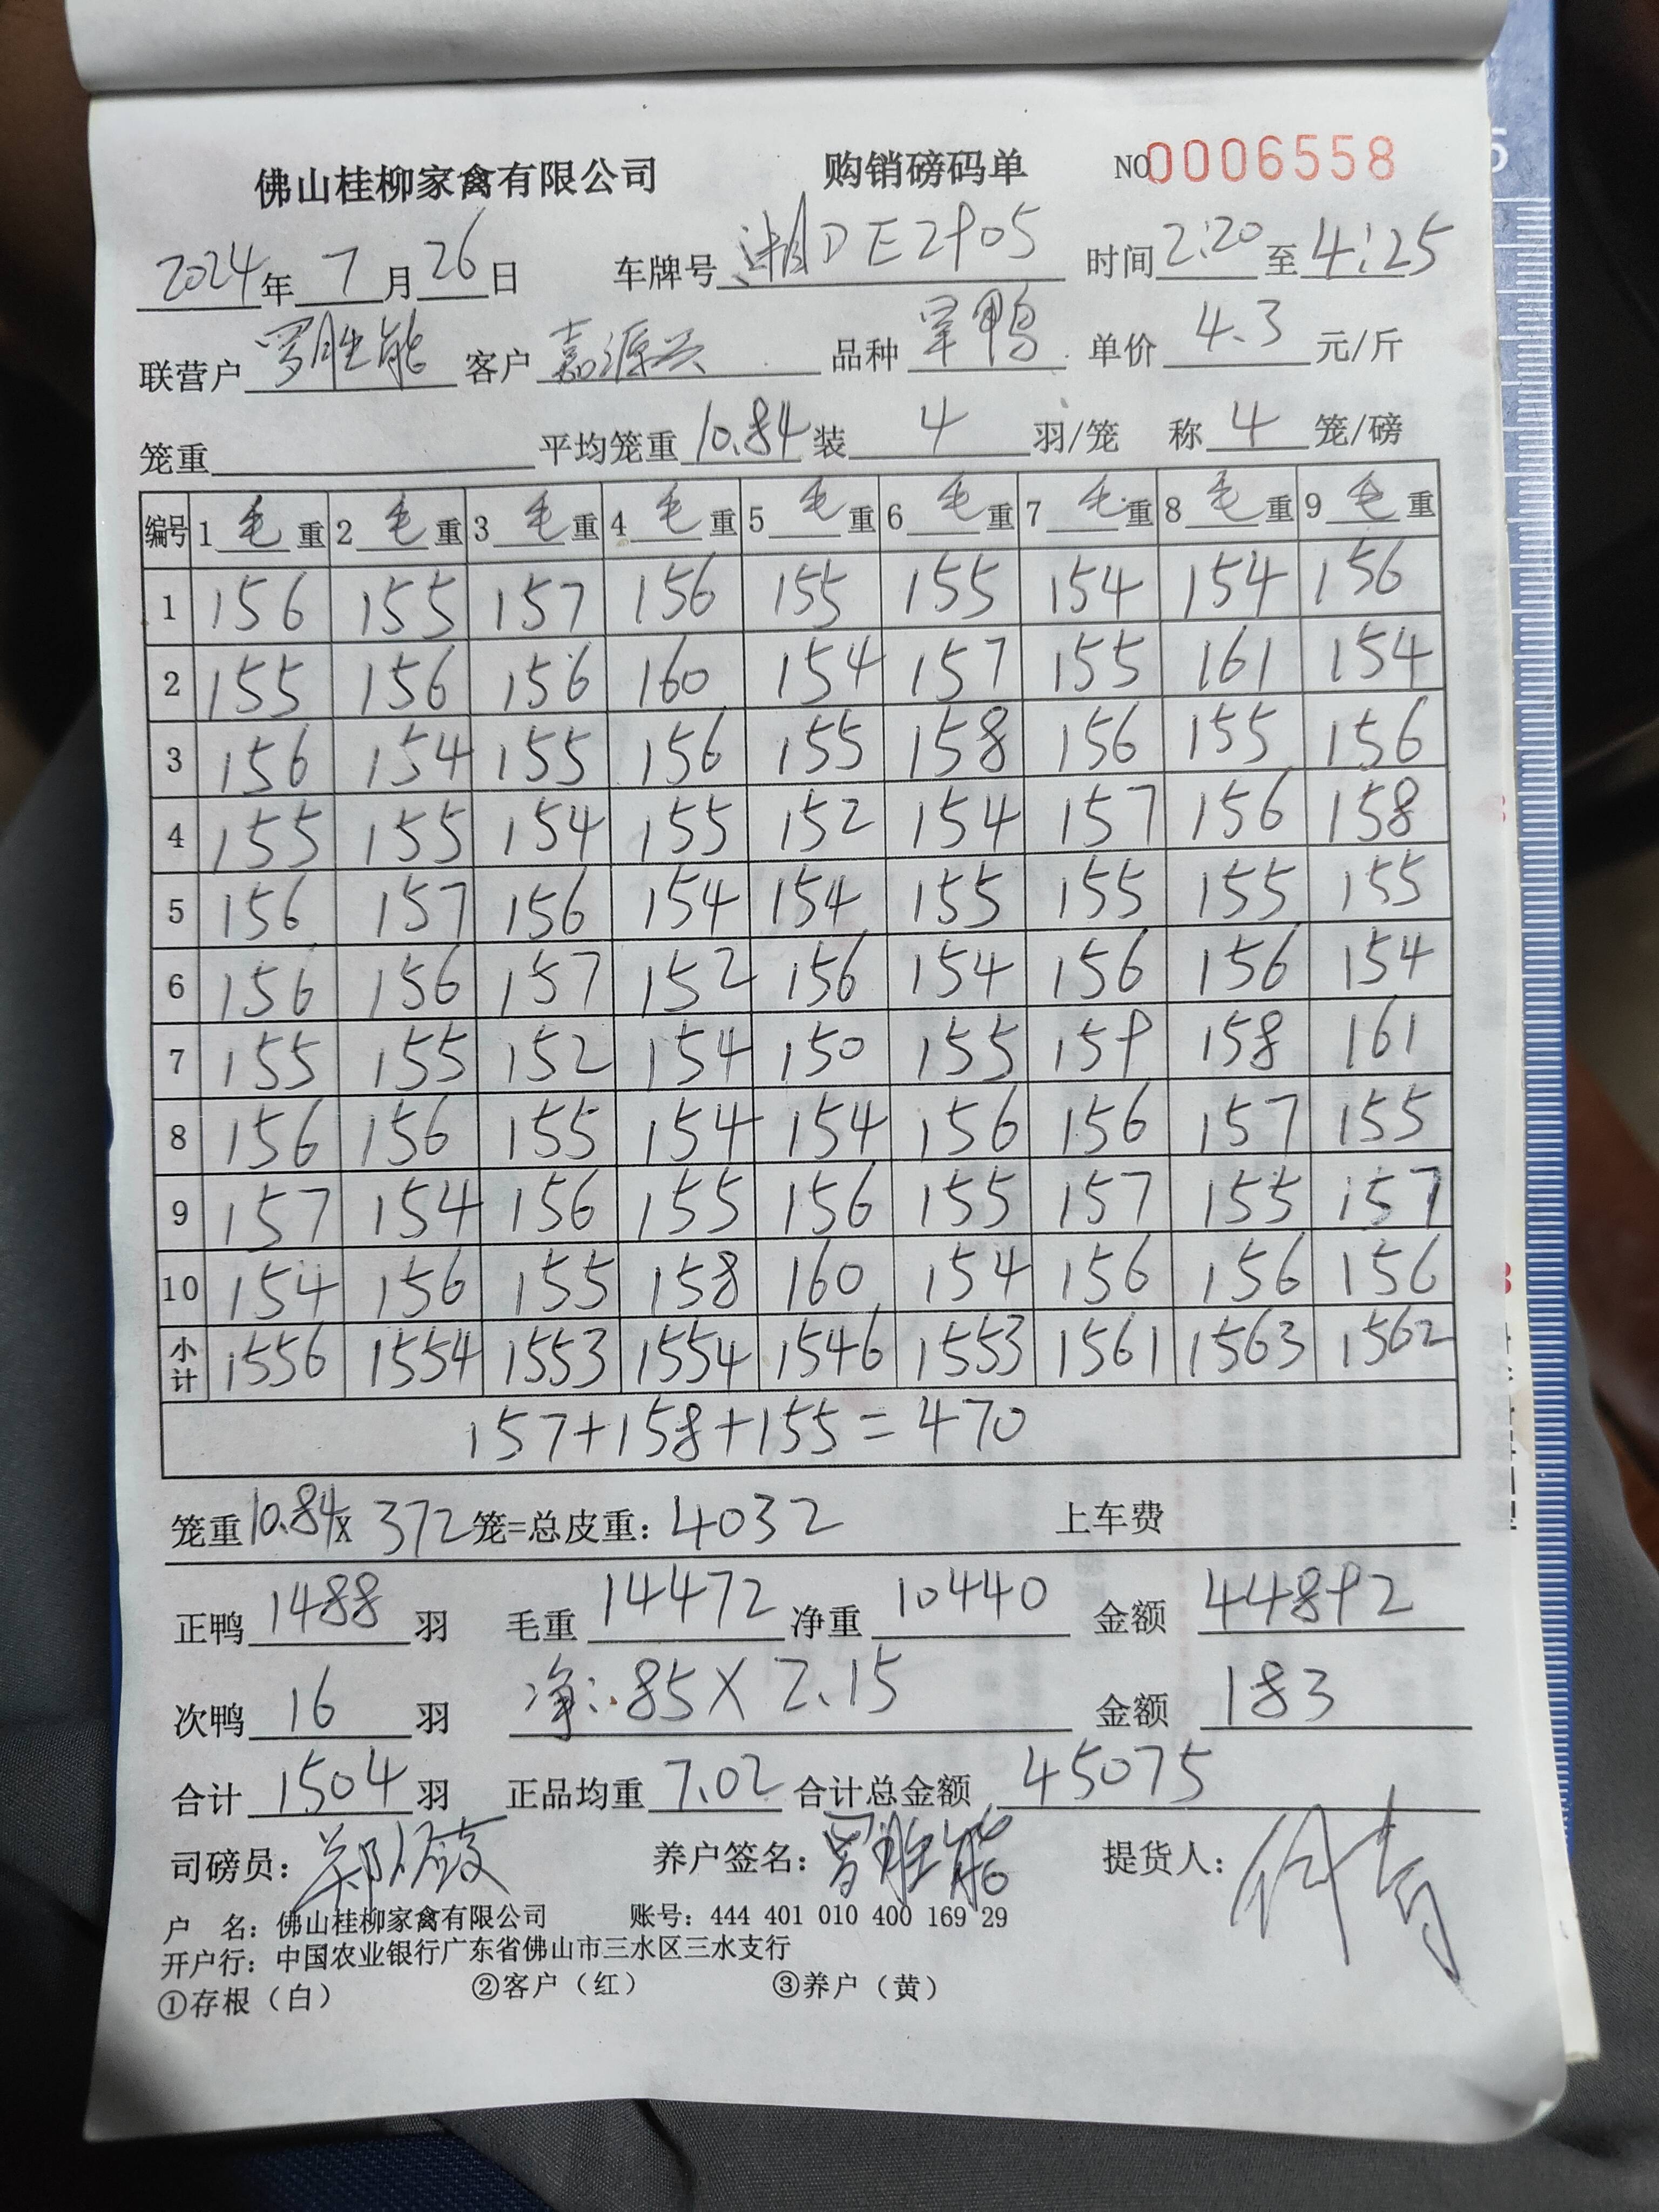 佛山桂柳家禽有限公司 购销磅码单 NO0006558
2024年 7月26日 车牌号 湘DE2905 时间2:20至4:25
联营户 罗胜能 客户 嘉源兴 品种 单价 4.3 元/斤
笼重 平均笼重 10.84 装 4 羽/笼 称 4 笼/磅
编号 1毛重 2毛重 3毛重 4毛重 5毛重 6毛重 7毛重 8毛重 9毛重
1 156 155 157 156 155 155 154 154 156
2 155 156 156 160 154 157 155 161 154
3 156 154 155 156 155 158 156 155 156
4 155 155 154 155 152 154 157 156 158
5 156 157 156 154 154 155 155 155 155
6 156 156 157 152 156 154 156 156 154
7 155 155 152 154 150 155 159 158 161
8 156 156 155 154 154 156 156 157 155
9 157 154 156 155 156 155 157 155 157
10 154 156 155 158 160 154 156 156 156
小计 1556 1554 1553 1554 1546 1553 1561 1563 1562
157+158+155=470
笼重10.84x 372笼=总皮重: 4032 上车费
正鸭 1488 羽 毛重 14472 净重 10440 金额 44892
次鸭 16 羽 净: 85X2.15 金额 183
合计 1504 羽 正品均重 7.02 合计总金额 45075
司磅员: 养户签名: 罗胜能 提货人:
户 名: 佛山桂柳家禽有限公司 账号: 444 401 010 400 169 29
开户行: 中国农业银行广东省佛山市三水区三水支行
①存根（白） ②客户（红） ③养户（黄）